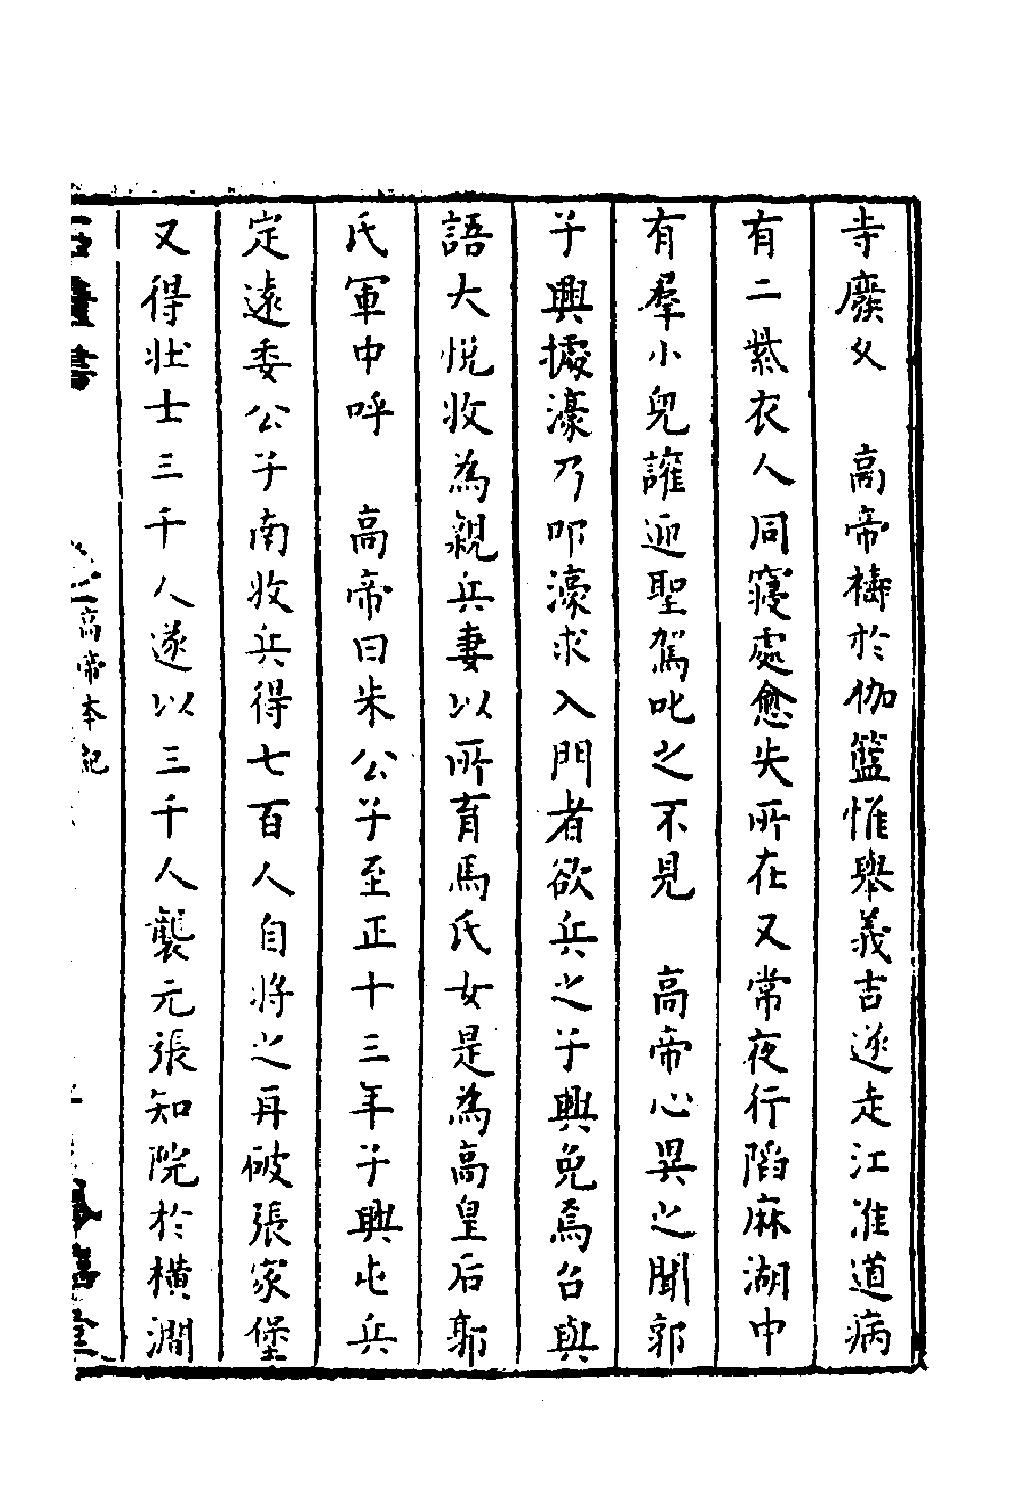 寺廢乆　高帝禱於伽籃惟舉義吉遂走江淮道病
有二紫衣人同寢處愈失所在又常夜行陷麻湖中
有羣小兒讙迎聖駕叱之不見　高帝心異之聞郭
子興據濠乃叩濠求入門者欲兵之子興免焉召與
語大悅收為親兵妻以所育馬氏女是為高皇后郭
氏軍中呼　高帝曰朱公子至正十三年子興屯兵
定遠委公子南收兵得七百人自將之再破張家堡
又得壯士三千人遂以三千人襲元張知院於橫澗
石匱書　高帝本記　鳳嬉堂